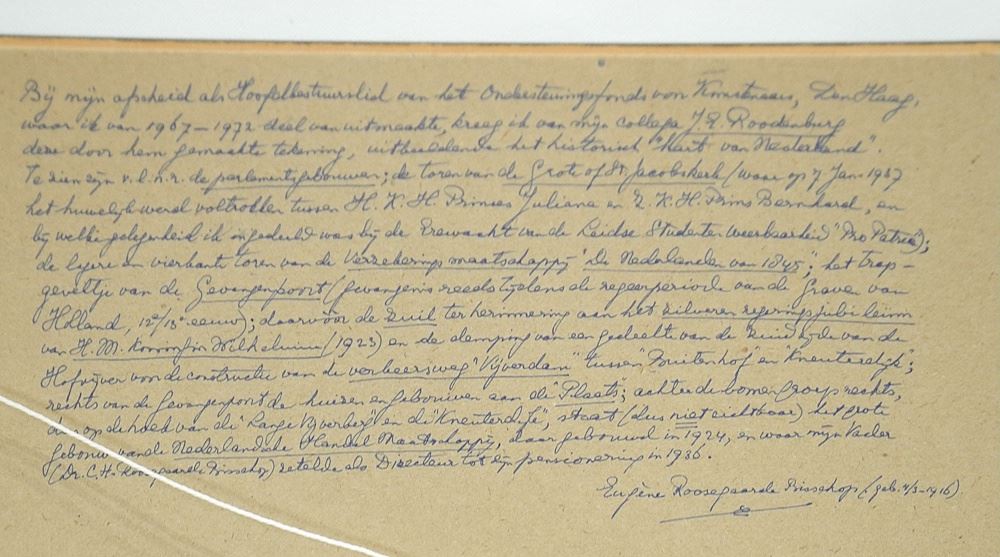 Bij mijn afscheid als Hoofdbestuurslid van het Ondersteuningsfonds voor Kunstenaars, Den Haag,
waar ik van 1967–1972 deel van uitmaakte, kreeg ik van mijn collega J.A. Roodenburg
deze door hem gemaakte tekening, uitbeeldende het historisch "hart van Nederland".
Te zien zijn v.l.n.r. de parlementsgebouwen; de toren van de Grote of St. Jacobskerk (waar op 7 Jan. 1937
het huwelijk werd voltrokken tussen H.K.H. Prinses Juliana en Z.K.H. Prins Bernhard, en
bij welke gelegenheid ik ingedeeld was bij de Erewacht van de Leidse Studenten Weerbaarheid "Pro Patria");
de ijzere en vierkante toren van de Verzekeringsmaatschappij "De Nederlanden van 1845"; het trap-
geveltje van de Gevangenpoort (gevangenis reeds tijdens de regeerperiode van de Graven van
Holland, 12e/13e eeuw); daarvóór de zuil ter herinnering aan het zilveren regeringsjubileum
van H.M. Koningin Wilhelmina (1923) en de demping van een gedeelte van de zuidzijde van de
Hofvijver voor de constructie van de verkeersweg "Vijverdam" tussen "Buitenhof" en "Kneuterdijk";
rechts van de Gevangenpoort de huizen en gebouwen aan de "Plaats"; achter de bomengroep rechts,
dus op de hoek van de "Lange Vijverberg" en de "Kneuterdijk", staat (dus niet zichtbaar) het grote
gebouw van de Nederlandsche Handel Maatschappij, daar gebouwd in 1924, en waar mijn Vader
(Dr. C.H. Roosegaarde Bisschop) zetelde als Directeur tot zijn pensionering in 1936.
Eugène Roosegaarde Bisschop (geb. 4/3-1916).